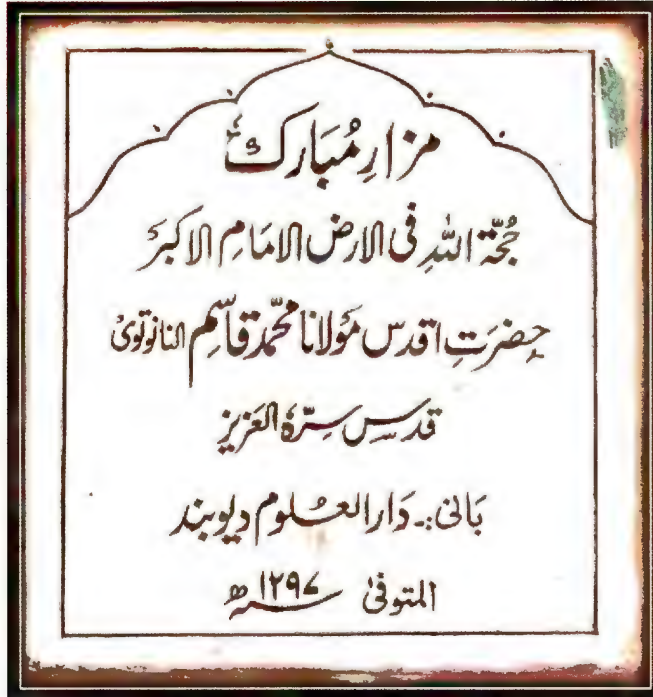 مزارِ مُبارک
حُجّۃ اللہِ فی الارض الامَامِ الاکبرَ
حضرَتِ اقدس مَولانا محمّد قاسِم النانوتویؒ
قدس سِرّہٗ العَزیز
بَانی:۔ دَار العلُوم دیوبند
المتوفیٰ ۱۲۹۷ھ